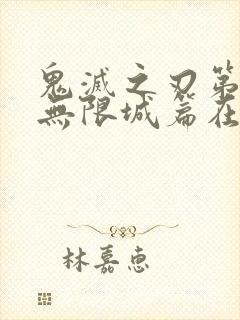 鬼滅之刃第
無限城篇在
林嘉惠